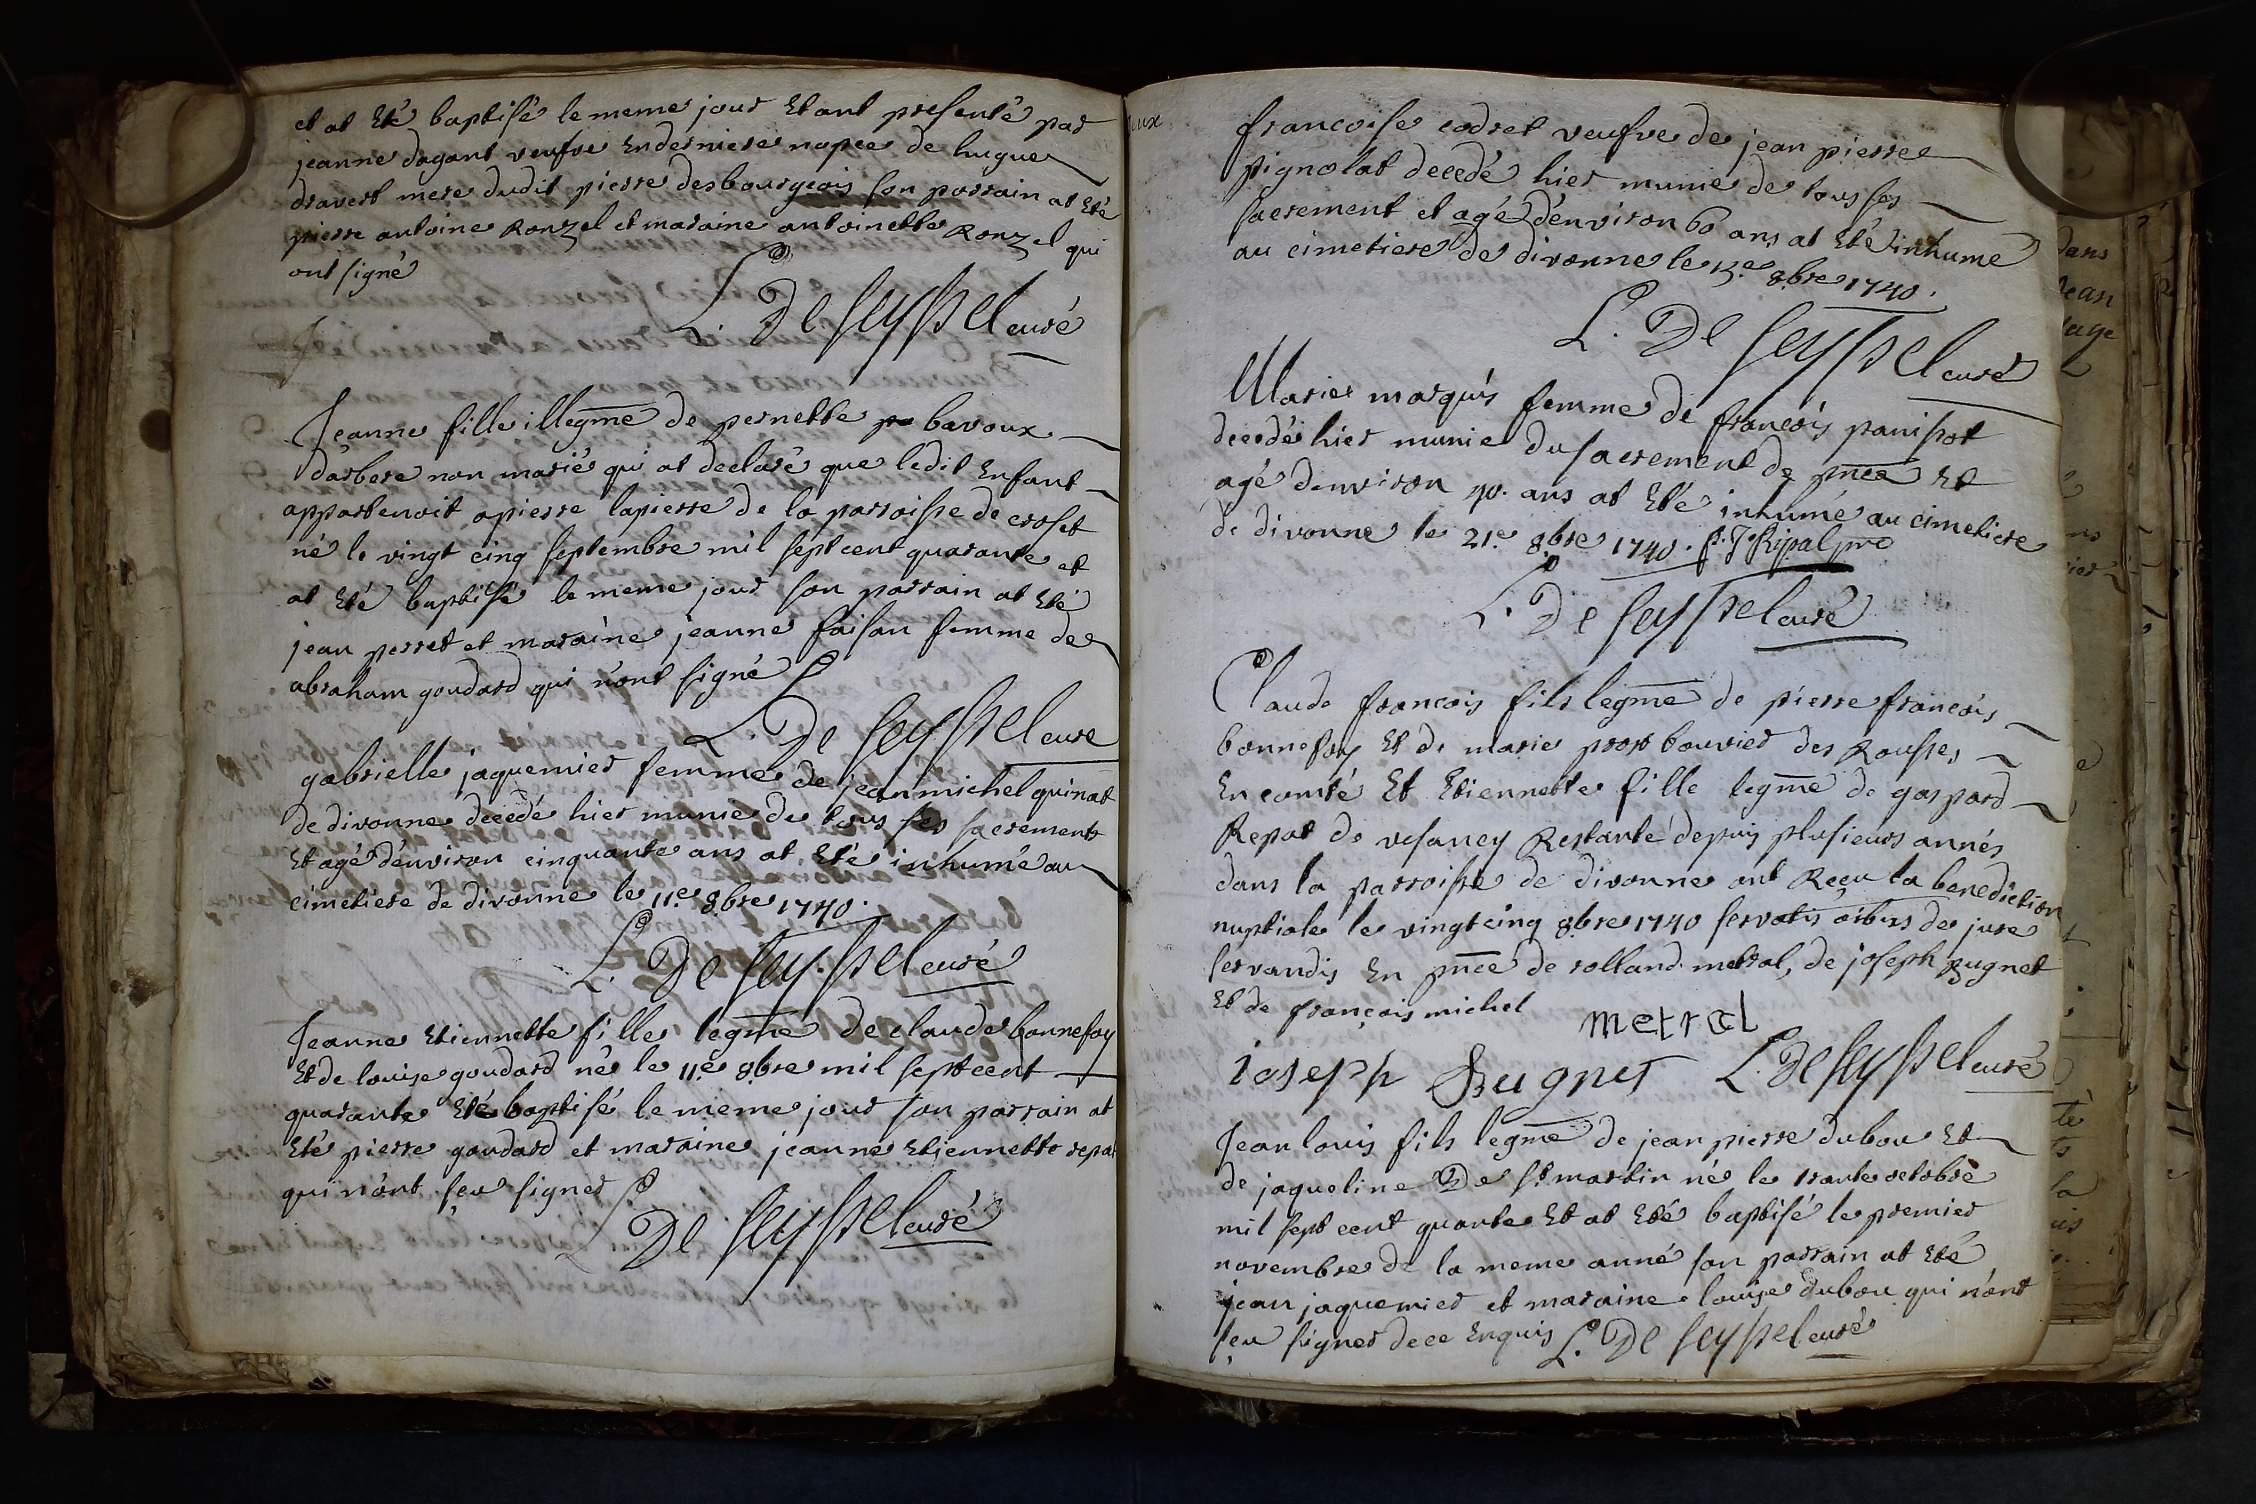 et at Eté baptisé le meme jour Etant presenté par
jeanne dagant veufve En derniere nopce de hugue
dravert mere dudit pierre desbourgeois son parrain at Eté
pierre antoine Ronzel et maraine antoinette Ronzel qui
ont signé
L. De seyssel curé
Jeanne fille illegme de pernette bavoux
darbere non marié qui at declaré que ledit Enfant
appartenoit a pierre lapierre de la parroisse de croset
né le vingt cinq septembre mil sept cent quarante et
at Eté baptisé le meme jour son parrain at Eté
jean perret et maraine jeanne faisan femme de
abraham goudard qui n'ont signé
L. De seyssel cure
gabrielle jaquemier femme de jean michel quinat
de divonne decedé hier munie de tous ses sacrements
Et agé d'environ cinquante ans at Eté inhumé au
cimetiere de divonne le 11e 8bre 1740.
L. De seyssel curé
Jeanne Etiennette fille legme de claude bonnefoy
Et de louise goudard né le 11e 8bre mil sept cent
quarante Eté baptisé le meme jour son parrain at
Eté pierre goudard et maraine jeanne Etiennette repat
qui n'ont sçu signer
L. De seyssel curé
francoise codret veufve de jean pierre
pignolat decedé hier munie de tous ses
sacrement et agé d'environ 60 ans at Eté inhumé
au cimetiere de divonne le 8bre 1740.
L. De seyssel curé
Marie marquis femme de francois panissot
decedé hier munie du sacrement de pnce Et
agé d'environ 40. ans at Eté inhumé au cimetiere
de divonne le 21e 8bre 1740.
L. De seyssel curé
Claude francois fils legme de pierre francois
bonnefoy Et de marie prost bouvier des Rousses
En comté Et Etiennette fille legme de gaspard
Repat de vesancy Restante depuis plusieurs annés
dans la parroisse de divonne ont Reçu la benediction
nuptiale le vingt cinq 8bre 1740 servatis oibus de jure
servandis En pnce de rolland metral, de joseph Rugnet
Et de françois michel
metral
ioseph Rugnet L. De seyssel curé
Jean louis fils legme de jean pierre dubou Et
de jaqueline De st martin né le trante octobre
mil sept cent quarante Et at Eté baptisé le premier
novembre de la meme anné son parrain at Eté
jean jaquemier et maraine louise dubou qui n'ont
sçu signer de ce Enquis L. De seyssel curé